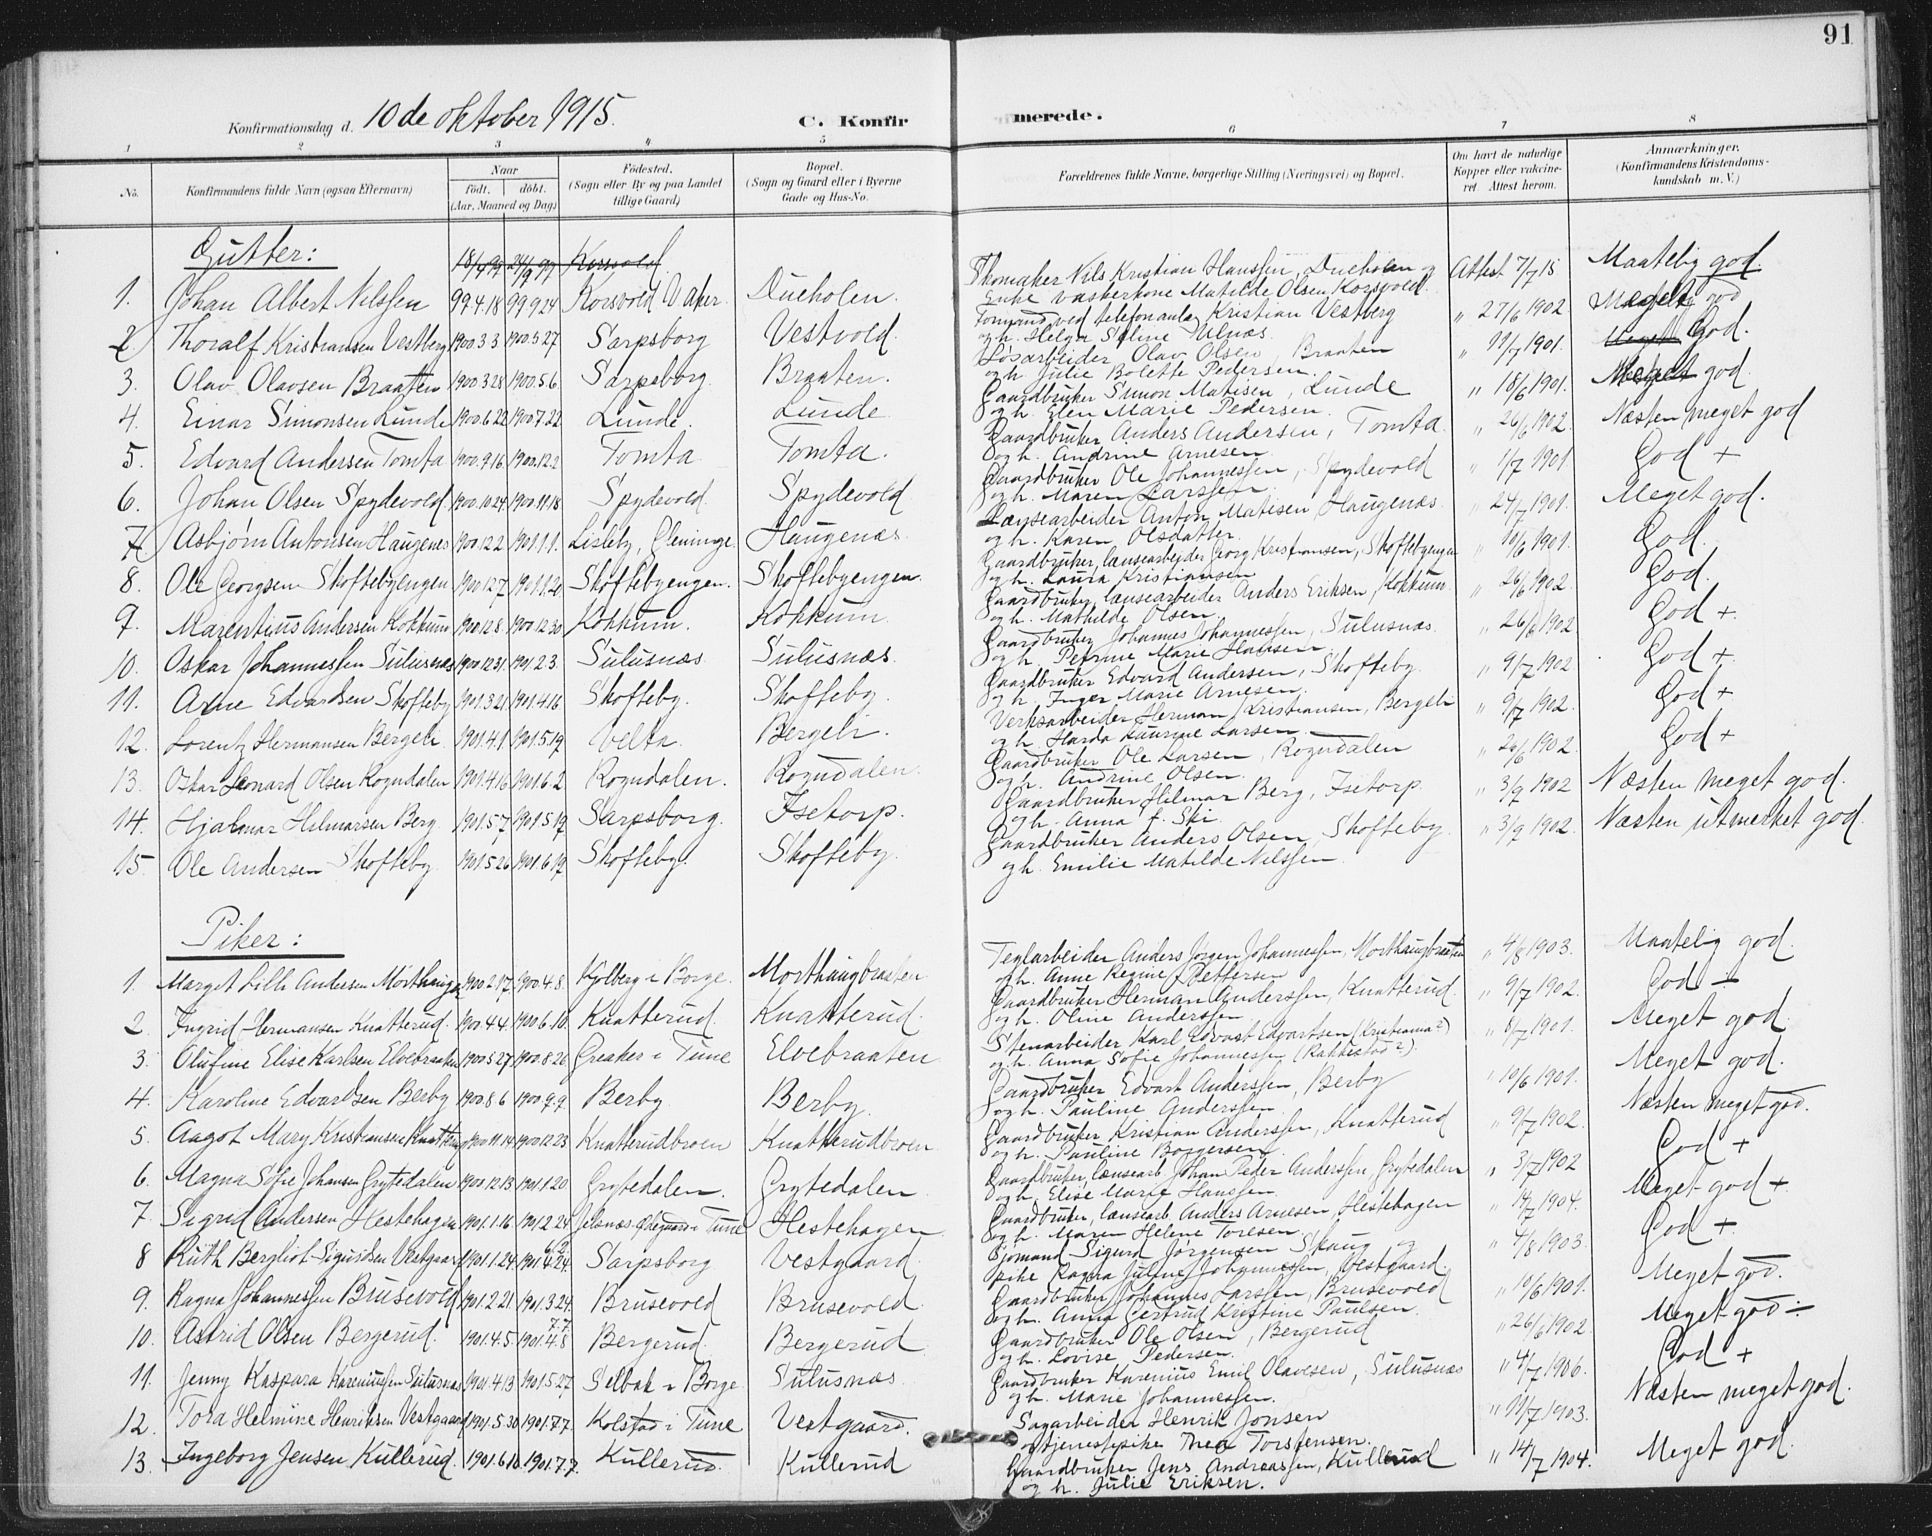 91
Konfirmationsdag d. 10 de oktober 1915. C. Konfirmerede.
1 2 3 4 5 6 7 8
No. Konfirmandens fulde Navn (ogsaa Efternavn) Naar født. døbt. (Aar, Maaned og Dag) Fødested. (Sogn eller By og paa Landet tillige Gaard) Bopæl. (Sogn og Gaard eller i Byerne Gade og Hus-No. Forældrenes fulde Navne, borgerlige Stilling (Næringsvei) og Bopæl. Om havt de naturlige Kopper eller vakcineret. Attest herom. Anmærkninger. (Konfirmandens Kristendomskundskab m. V.)
Gutter: 18/4 99 24/9 99 Korsvold
1. Johan Albert Nilssen 99.4.18 99.9.24 Korsvold Vaker. Dueholen. Skomaker Nils Kristian Hanssen, Dueholen og Attest 7/7 15 Maatelig god.
Enke vaskerkone Matilde Olsen Korsvold.
2 Thoralf Kristiansen Vestberg 1900.3.3 1900.5.27 Sarpsborg Vestvold. Formand ved telefonanlæg Kristian Vestberg " 27/6 1902 Meget god
og h. Helga Seline Ulnæs.
3. Olav Olavsen Braaten 1900.3.28 1900.5.6. Sarpsborg. Braaten. Løsarbeider Olav Olsen, Braaten " 11/7 1901. Meget God.
og h. Julie Bolette Pedersen.
4. Einar Simonsen Lunde 1900.6.22 1900.7.22 Lunde. Lunde Gaardbruker Simon Matisen, Lunde " 18/6 1901. Meget god
og h. Elen Marie Pedersen.
5. Edvard Andersen Tomta 1900.9.16 1900.12.2 Tomta Tomta. Gaardbruker Anders Andersen, Tomta. " 26/6 1902. Næsten meget god
og h. Andrine Arnesen.
6. Johan Olsen Spydevold 1900.10.24 1900.11.18 Spydevold. Spydevold. Gaardbruker Ole Johannessen, Spydevold " 1/7 1901 God +
og h. Maren Larssen.
7 Asbjørn Antonsen Haugenes 1900.12.2 1901.1.1. Lisleby, Gleminge. Haugenæs. Lænsearbeider Anton Matisen, Haugenæs. " 24/7 1901. Meget god.
og h. Karen Olsdatter.
8. Ole Georgsen Skoftebyengen 1900.12.7 1901.1.20 Skoftebyengen. Skoftebyengen. Gaardbruker, lænsearbeider Georg Kristiansen, Skoftebyengen " 10/6 1901. God.
og h. Laura Kristiansen
9. Marentius Andersen Kokkum 1900.12.8 1900.12.30 Kokkum. Kokkum. Gaardbruker, lænsearbeider Anders Eriksen, Kokkum " 26/6 1902. God.
og h. Mathilde Olsen.
10. Oskar Johannessen Sulusnæs 1900.12.31 1901.2.3. Sulusnæs Sulusnæs. Gaardbruker Johannes Johannessen, Sulusnæs. " 26/6 1902 God +
og h. Petrine Marie Hansen.
11. Arne Edvardsen Skofteby 1901.3.21 1901.4.16 Skofteby. Skofteby. Gaardbruker Edvard Andersen, Skofteby. " 9/7 1902 God +
og h. Inger Marie Arnesen.
12. Lorentz Hermansen Bergeli 1901.4.1 1901.5.19 Velta. Bergeli. Verksarbeider Herman Kristiansen, Bergeli " 9/7 1902. God +
og h. Harda Laurine Larsen.
13. Oskar Leonard Olsen Rogndalen 1901.4.16 1901.6.2 Rogndalen. Rogndalen. Gaardbruker Ole Larsen, Rogndalen " 26/6 1902. God +
og h. Andrine Olsen.
14. Hjalmar Hilmarsen Berg. 1901.5.7 1901.5.19 Sarpsborg. Isetorp. Gaardbruker Hilmar Berg, Isetorp. " 3/9 1902 Næsten meget god.
og h. Anna f. Ski.
15. Ole Andersen Skofteby. 1901.5.26 1901.6.19 Skofteby. Skofteby. Gaardbruker Anders Olsen, Skofteby. " 3/9 1902. Næsten utmerket god.
og h. Emilie Matilde Nilssen.
Piker:
1. Marget Lilli Andersen 1900.2.17 1900.4.8. Kjølberg i Borge. Morthaugbraaten Teglarbeider Anders Jørgen Johannessen, Morthaugbraaten " 4/8 1903. Maatelig god.
og h. Anne Regine Pettersen
2. Ingrid Hermansen Knatterud. 1900.4.4 1900.6.10. Knatterud. Knatterud. Gaardbruker Herman Anderssen, Knatterud " 9/7 1902. God ÷
og h. Oline Anderssen
3. Olufine Elise Karlsen Elvebraaten 1900.5.27 1900.8.26 Greaker i Tune Elvebraaten Stenarbeider Karl Edvart Edvartsen (Kristiania?) " 8/7 1901. Meget god.
og h. Anna Sofie Johannessen (Rakkestad?).
4. Karoline Edvardsen Berby 1900.8.6 1900.9.9. Berby. Berby. Gaardbruker Edvart Anderssen, Berby " 10/6 1901. Meget god.
og h. Pauline Anderssen.
5. Aagot Mary Kristiansen 1900.11.14 1900.12.23 Knatterudbroen Knatterudbroen Gaardbruker Kristian Anderssen, Knatterud " 9/7 1902. Næsten meget god.
og h. Pauline Borgersen.
6. Magna Sofie Johansen Grytedalen 1900.12.13 1901.1.20 Grytedalen. Grytedalen. Gaardbruker, lænsearb. Johan Peder Anderssen, Grytedalen " 3/7 1902 God +
og h. Elise Marie Hanssen.
7 Sigrid Andersen Hestehagen 1901.1.16 1901.2.24 Jelsnæs Ødegaard i Tune Hestehagen Gaardbruker, lænsearb. Anders Arnesen, Hestehagen " 14/7 1904. Meget god +
og h. Maren Helene Toresen.
8 Ruth Bergliot Sigurdsen Vestgaard 1901.1.24 1901.4.24. Sarpsborg Vestgaard. Sjømand Sigurd Jørgensen Skaug og " 4/8 1903. God +
pike Ragna Juline Johannessen, Vestgaard.
9. Ragna Johannessen Brusevold 1901.2.21 1901.3.24. Brusevold Brusevold. Gaardbruker Johannes Larssen, Brusevold " 10/6 1901. Meget god.
og h. Anna Gertrud Kristine Paulsen.
10. Astrid Olsen Bergerud. 1901.4.5 1901.4.8 7.7 Bergerud. Bergerud Gaardbruker Ole Olsen, Bergerud " 26/6 1902. Meget god ÷
og h. Lovise Pedersen.
11. Jenny Kaspara Kareniussen Sulusnæs 1901.4.13 1901.5.27 Selbak i Borge Sulusnæs. Gaardbruker Karenius Emil Olavesen, Sulusnæs " 4/7 1906. God +
og h. Marie Johannessen.
12. Tora Helmine Henriksen Vestgaard 1901.5.30 1901.7.7. Kolstad i Tune Vestgaard. Sagarbeider Henrik Jonsen " 11/7 1903. Næsten meget god.
og tjenestepike Thea Torstensen.
13. Ingeborg Jensen Kullerud. 1901.6.10. 1901.7.7. Kullerud. Kullerud Gaardbruker Jens Andreassen, Kullerud " 14/7 1904. Meget god.
og h. Julie Eriksen.